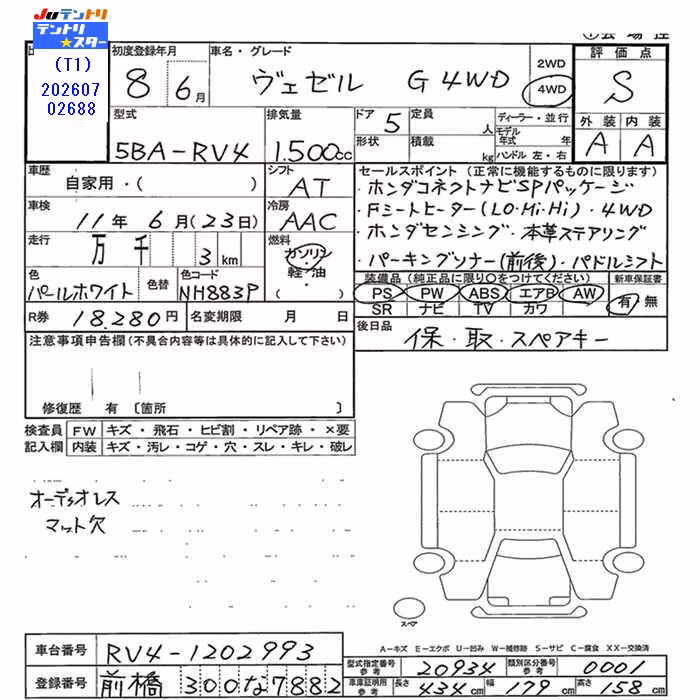 Juテントリ
テントリ★スター
(T1)
202607
02688
初度登録年月 8 6月
車名・グレード ヴェゼル G 4WD
2WD
4WD
評価点 S
外装 内装
A A
型式 5BA-RV4
排気量 1.500cc
ドア 5
形状
定員 人
積載 kg
ディーラー・並行
モデル年式 年
ハンドル 左・右
車歴 自家用・( )
シフト AT
車検 11年6月(23日)
冷房 AAC
走行 万 千 3 km
燃料 ガソリン・軽・油
色 パールホワイト
色替
色コード NH883P
R券 18.280円
名変期限 月 日
セールスポイント (正常に機能するものに限ります)
・ホンダコネクトナビSPパッケージ
・Fシートヒーター(LO・Mi・Hi)・4WD
・ホンダセンシング・本革ステアリング
・パーキングソナー(前後)・パドルシフト
装備品(純正品に限り○をつけてください)
新車保証書
PS PW ABS エアB AW
有・無
SR ナビ TV カワ
後日品 保・取・スペアキー
注意事項申告欄(不具合内容等は具体的に記入して下さい)
修復歴 有 〔箇所 〕
検査員記入欄
FW キズ・飛石・ヒビ割・リペア跡・×要
内装 キズ・汚レ・コゲ・穴・スレ・キレ・破レ
オーディオレス
マット欠
スペア
A-キズ E-エクボ U-凹み W-補修跡 S-サビ C-腐食 XX-交換済
車台番号 RV4-1202993
型式指定番号 参考 20934
類別区分番号 参考 0001
登録番号 前橋 300な7882
車庫証明用 参考 長さ 434cm 幅 179cm 高さ 158cm